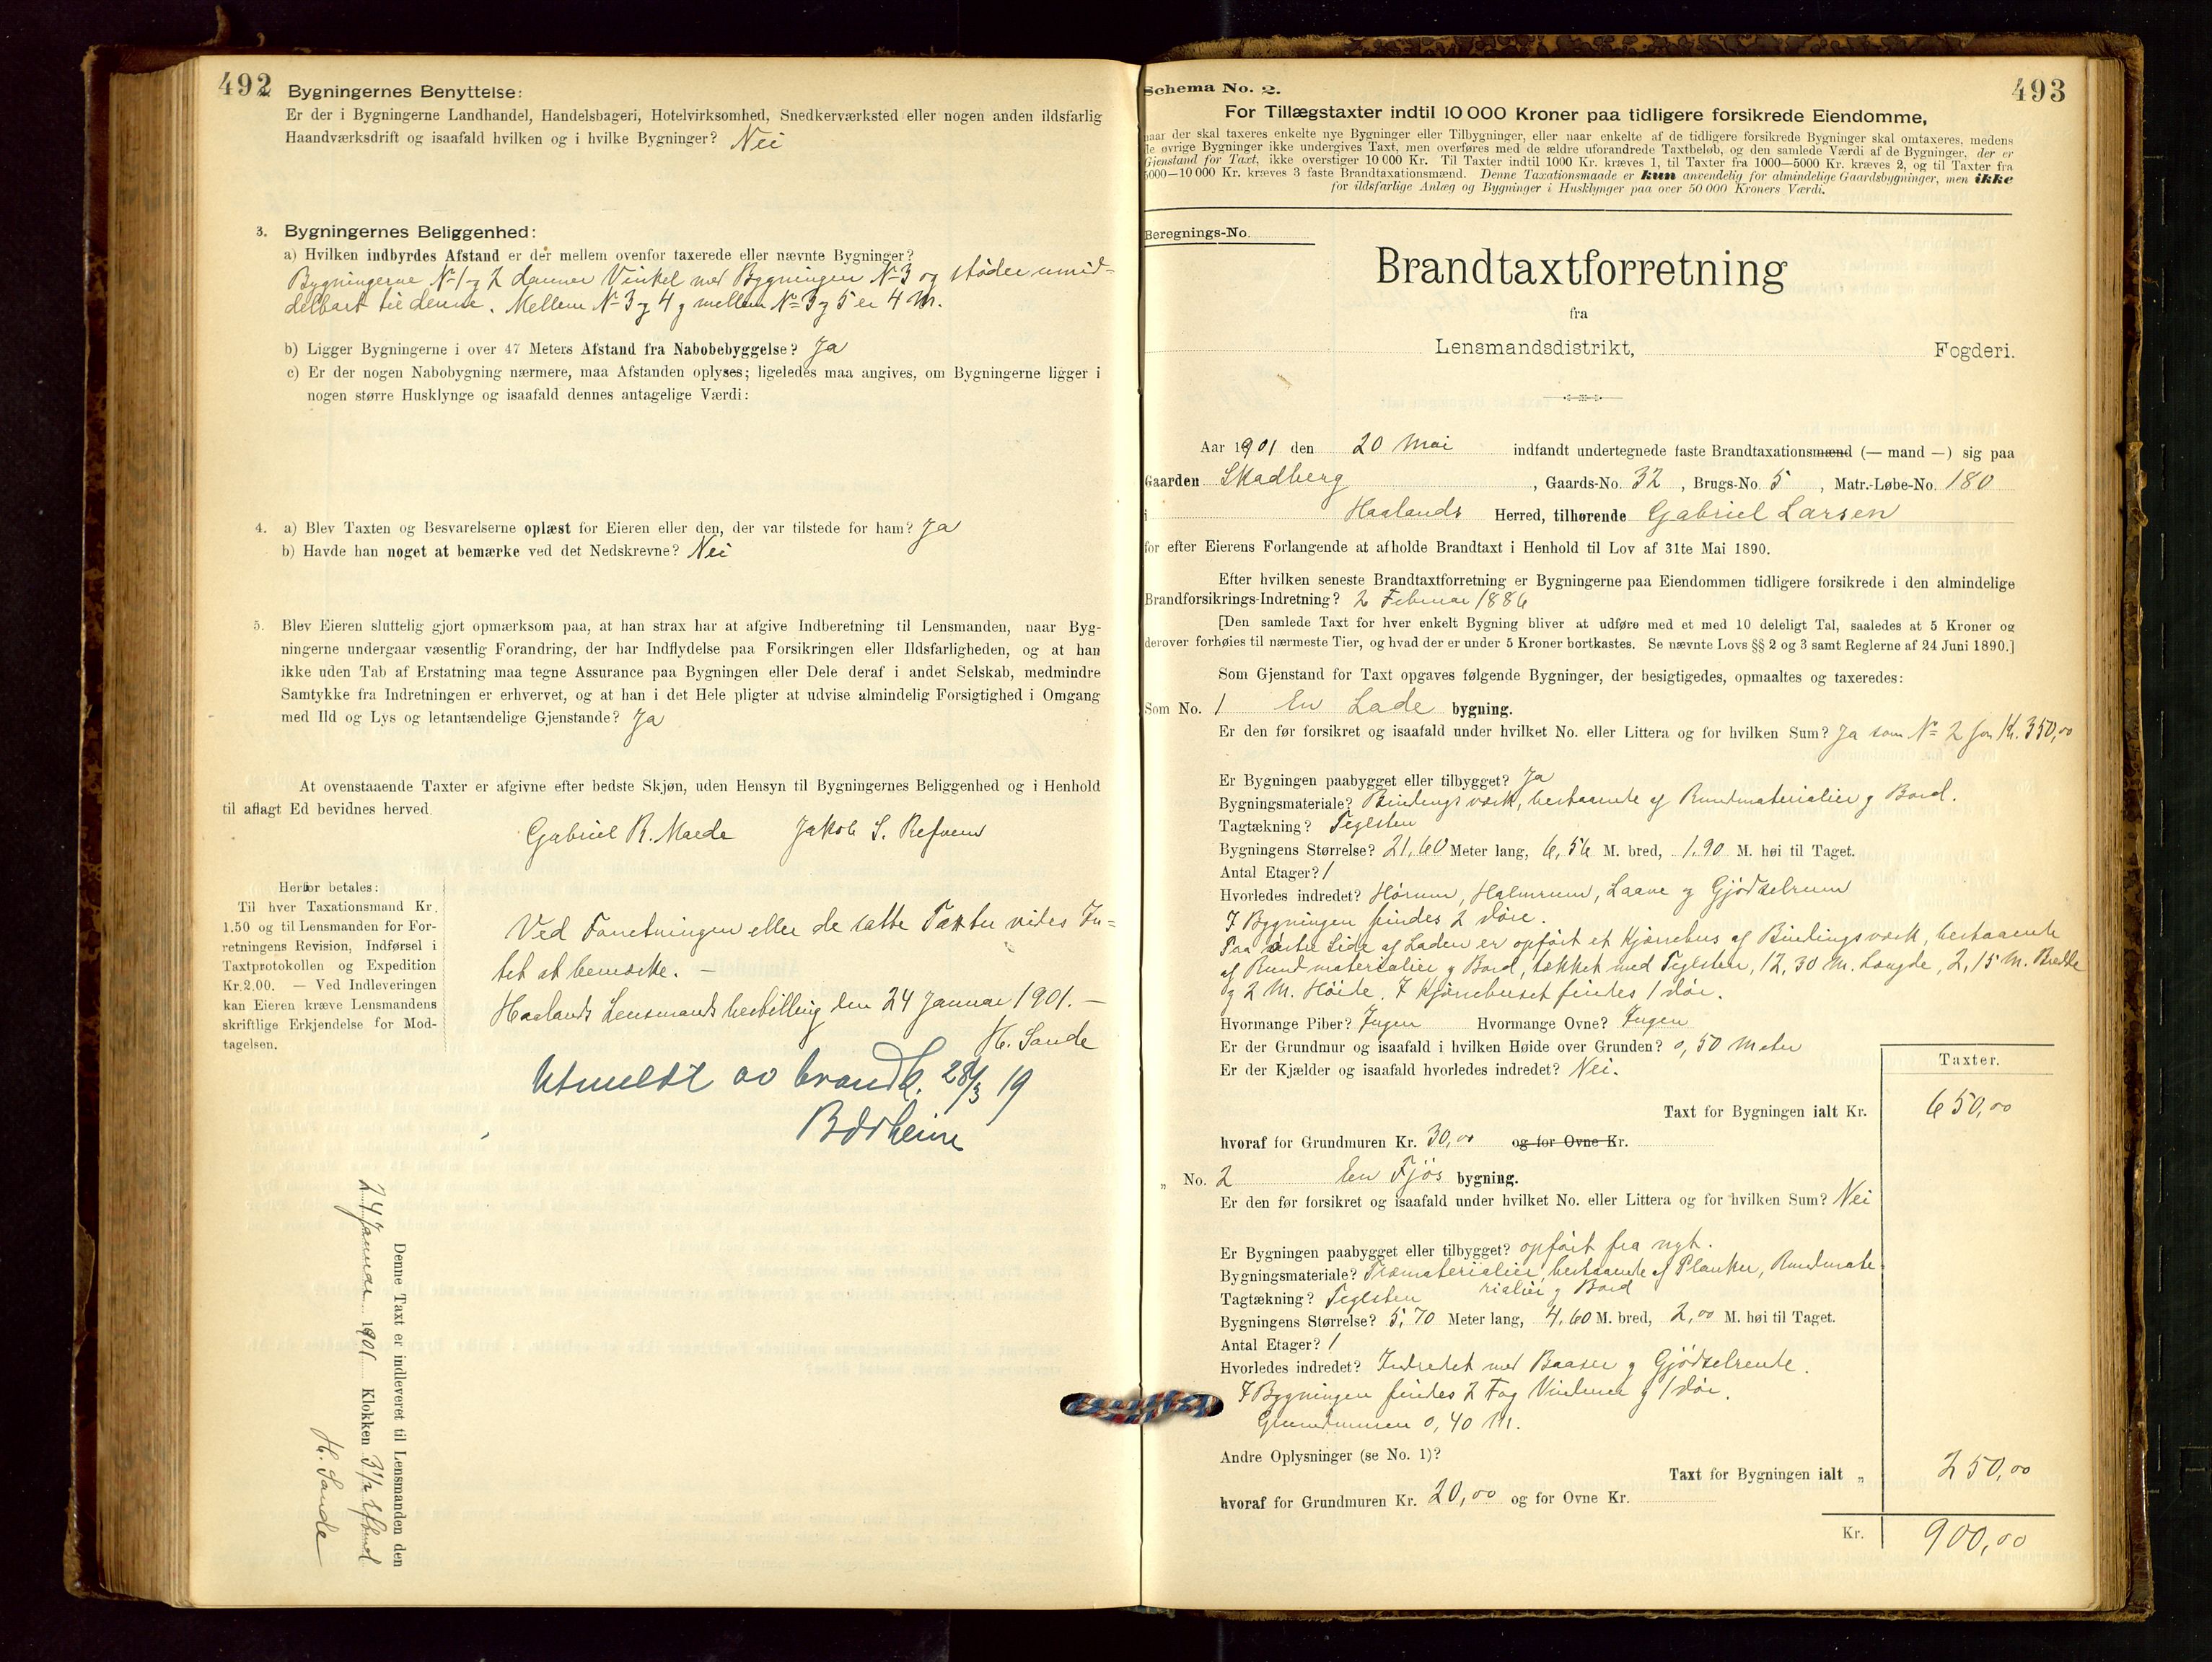 492
Bygningernes Benyttelse:
Er der i Bygningerne Landhandel, Handelsbageri, Hotelvirksomhed, Snedkerværksted eller nogen anden ildsfarlig
Haandværksdrift og isaafald hvilken og i hvilke Bygninger? Nei
3. Bygningernes Beliggenhed:
a) Hvilken indbyrdes Afstand er der mellem ovenfor taxerede eller nævnte Bygninger?
Bygningerne No 1 og 2 danner Vinkel med Bygningen No 3 og støder umid-
delbart til denne. Mellem No 3 og 4 og mellem No 3 og 5 er 4 M.
b) Ligger Bygningerne i over 47 Meters Afstand fra Nabobebyggelse? Ja
c) Er der nogen Nabobygning nærmere, maa Afstanden oplyses; ligeledes maa angives, om Bygningerne ligger i
nogen større Husklynge og isaafald dennes antagelige Værdi:
4. a) Blev Taxten og Besvarelserne oplæst for Eieren eller den, der var tilstede for ham? Ja
b) Havde han noget at bemærke ved det Nedskrevne? Nei
5. Blev Eieren sluttelig gjort opmærksom paa, at han strax har at afgive Indberetning til Lensmanden, naar Byg-
ningerne undergaar væsentlig Forandring, der har Indflydelse paa Forsikringen eller Ildsfarligheden, og at han
ikke uden Tab af Erstatning maa tegne Assurance paa Bygningen eller Dele deraf i andet Selskab, medmindre
Samtykke fra Indretningen er erhvervet, og at han i det Hele pligter at udvise almindelig Forsigtighed i Omgang
med Ild og Lys og letantændelige Gjenstande? Ja
At ovenstaaende Taxter er afgivne efter bedste Skjøn, uden Hensyn til Bygningernes Beliggenhed og i Henhold
til aflagt Ed bevidnes herved.
Gabriel R. Mæde Jakob S. Refnem
Herfor betales:
Til hver Taxationsmand Kr.
1.50 og til Lensmanden for For-
retningens Revision, Indførsel i
Taxtprotokollen og Expedition
Kr. 2.00. — Ved Indleveringen
kan Eieren kræve Lensmandens
skriftlige Erkjendelse for Mod-
tagelsen.
Ved Forretningen eller de satte Taxter vides In-
tet at bemærke. —
Haalands Lensmandsbestilling den 24 Januar 1901. —
H. Sande
Utmeldt av brandk. 28/3 19
Bærheim
Denne Taxt er indleveret til Lensmanden den
24 Januar 1901 Klokken 3 1/2 Efterm
H. Sande
493
Schema No. 2.
For Tillægstaxter indtil 10 000 Kroner paa tidligere forsikrede Eiendomme,
naar der skal taxeres enkelte nye Bygninger eller Tilbygninger, eller naar enkelte af de tidligere forsikrede Bygninger skal omtaxeres, medens
de øvrige Bygninger ikke undergives Taxt, men overføres med de ældre uforandrede Taxtbeløb, og den samlede Værdi af de Bygninger, der er
Gjenstand for Taxt, ikke overstiger 10 000 Kr. Til Taxter indtil 1000 Kr. kræves 1, til Taxter fra 1000—5000 Kr. kræves 2, og til Taxter fra
5000—10 000 Kr. kræves 3 faste Brandtaxationsmænd. Denne Taxationsmaade er kun anvendelig for almindelige Gaardsbygninger, men ikke
for ildsfarlige Anlæg og Bygninger i Husklynger paa over 50 000 Kroners Værdi.
Beregnings-No.
Brandtaxtforretning
fra
Lensmandsdistrikt, Fogderi.
Aar 1901 den 20 Mai indfandt undertegnede faste Brandtaxationsmænd (— mand —) sig paa
Gaarden Skadberg, Gaards-No. 32, Brugs-No. 5, Matr.-Løbe-No. 180
i Haalands Herred, tilhørende Gabriel Larsen
for efter Eierens Forlangende at afholde Brandtaxt i Henhold til Lov af 31te Mai 1890.
Efter hvilken seneste Brandtaxtforretning er Bygningerne paa Eiendommen tidligere forsikrede i den almindelige
Brandforsikrings-Indretning? 2 Februar 1886
[Den samlede Taxt for hver enkelt Bygning bliver at udføre med et med 10 deleligt Tal, saaledes at 5 Kroner og
derover forhøies til nærmeste Tier, og hvad der er under 5 Kroner bortkastes. Se nævnte Lovs §§ 2 og 3 samt Reglerne af 24 Juni 1890.]
Som Gjenstand for Taxt opgaves følgende Bygninger, der besigtigedes, opmaaltes og taxeredes:
Som No. 1 En Lade bygning.
Er den før forsikret og isaafald under hvilket No. eller Littera og for hvilken Sum? Ja som No 2 for Kr. 350,00
Er Bygningen paabygget eller tilbygget? Ja
Bygningsmateriale? Bindingsværk, bestaaende af Rundmaterialier og Bord.
Tagtækning? Teglsten
Bygningens Størrelse? 21,60 Meter lang, 6,56 M. bred, 1,90 M. høi til Taget.
Antal Etager? 1
Hvorledes indredet? Hørum, Halmrum, Laave og Gjødselrum
I Bygningen findes 2 Døre.
Paa østre Side af Laden er opført et Kjørrehus af Bindingsværk, bestaaende
af Rundmaterialier og Bord, tækket med Teglsten, 12,30 M. Længde, 2,15 M. Bredde
og 2 M. Høide. I Kjørrehuset findes 1 Dør.
Hvormange Piber? Ingen Hvormange Ovne? Ingen
Er der Grundmur og isaafald i hvilken Høide over Grunden? 0,50 Meter
Er der Kjælder og isaafald hvorledes indredet? Nei.
Taxter.
Taxt for Bygningen ialt Kr. 650,00
hvoraf for Grundmuren Kr. 30,00 og for Ovne Kr.
" No. 2 En Fjøs bygning.
Er den før forsikret og isaafald under hvilket No. eller Littera og for hvilken Sum? Nei
Er Bygningen paabygget eller tilbygget? opført fra nyt.
Bygningsmateriale? Træmaterialier, bestaaende af Planker, Rundmate-
rialier og Bord
Tagtækning? Teglsten
Bygningens Størrelse? 5,70 Meter lang, 4,60 M. bred, 2,00 M. høi til Taget.
Antal Etager? 1
Hvorledes indredet? Indredet med Baaser og Gjødselrende.
I Bygningen findes 2 Fag Vinduer og 1 Dør.
Grundmuren 0,40 M.
Andre Oplysninger (se No. 1)?
Taxt for Bygningen ialt " 250,00
hvoraf for Grundmuren Kr. 20,00 og for Ovne Kr.
Kr. 900,00